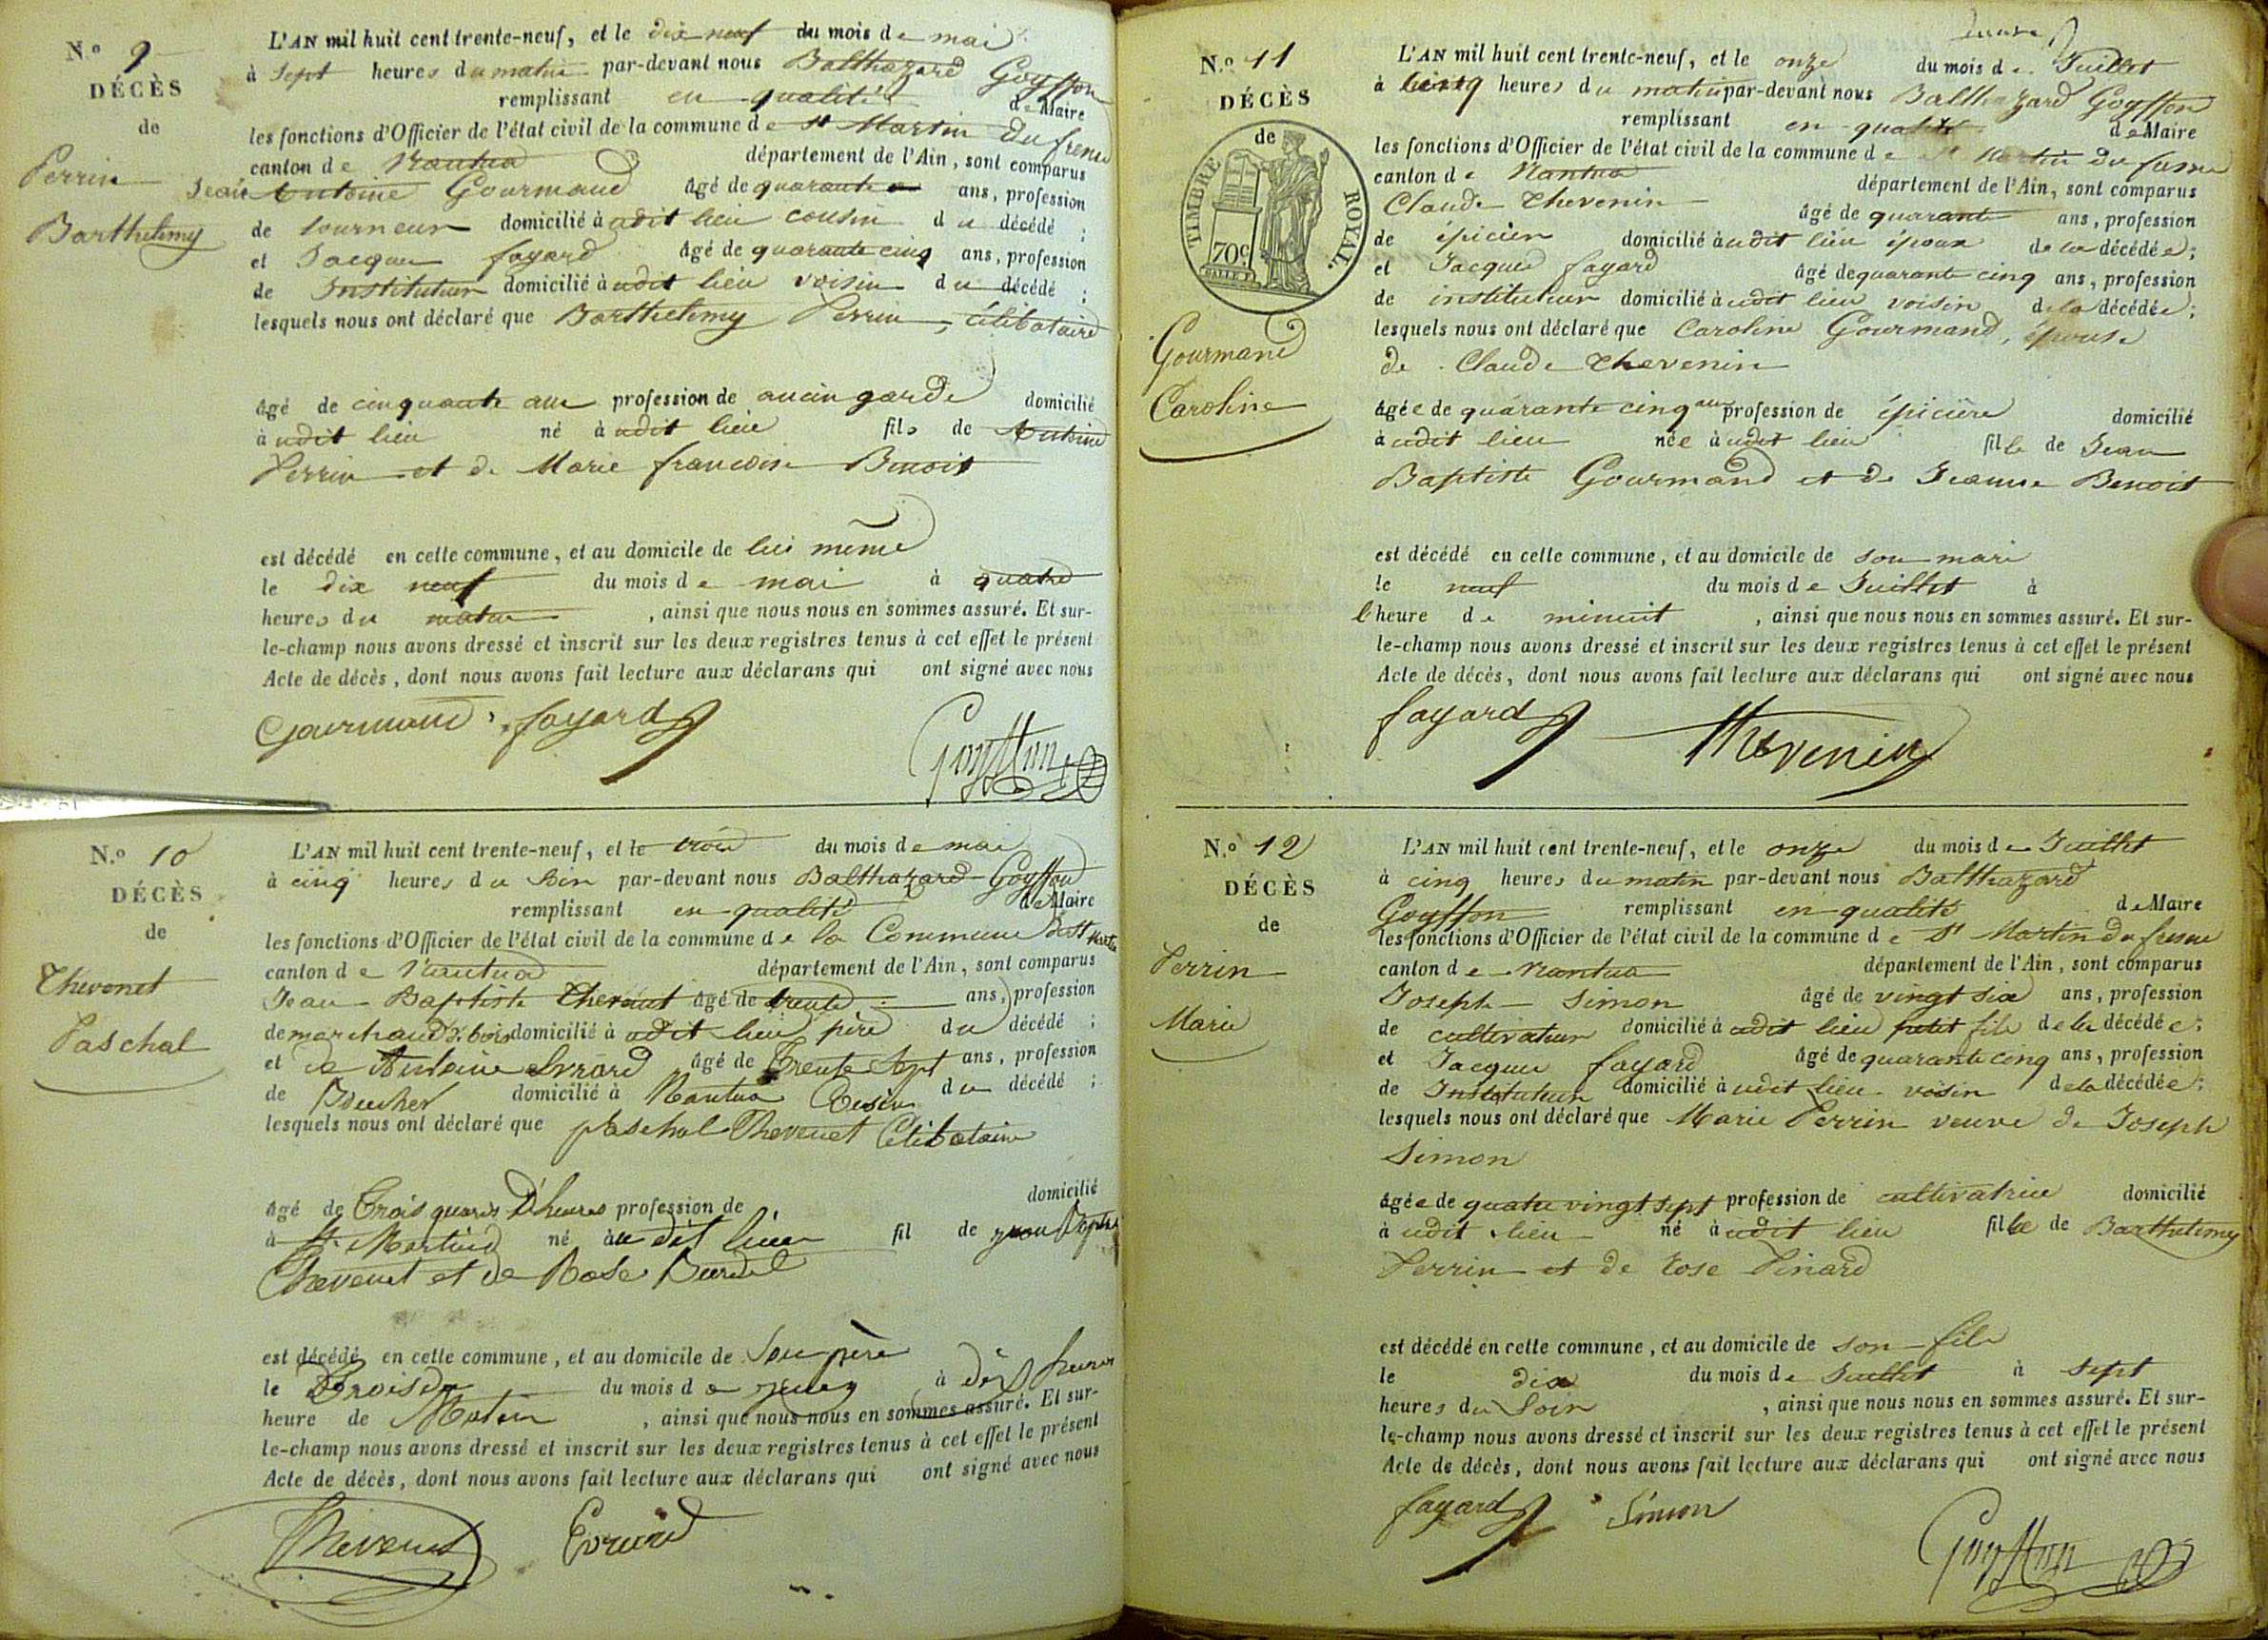 N.º 9
DÉCÈS
de
Perrin
Barthelemy
L'AN mil huit cent trente-neuf, et le dix neuf du mois de mai
à sept heures du matin par-devant nous Balthazard Goyffon
remplissant en qualité de Maire
les fonctions d'Officier de l'état civil de la commune de St Martin du fresne
canton de Nantua département de l'Ain, sont comparus
Jean Antoine Gourmand âgé de quarante ans, profession
de tourneur domicilié à udit lieu cousin du décédé ;
et Jacques fayard âgé de quarante cinq ans, profession
de Instituteur domicilié à udit lieu voisin du décédé ;
lesquels nous ont déclaré que Barthelemy Perrin, célibataire
âgé de cinquante ans profession de ancien garde domicilié
à udit lieu né à udit lieu fils de Antoine
Perrin et de Marie francoise Benoit
est décédé en cette commune, et au domicile de lui même
le dix neuf du mois de mai à quatre
heures du matin, ainsi que nous nous en sommes assuré. Et sur-
le-champ nous avons dressé et inscrit sur les deux registres tenus à cet effet le présent
Acte de décès, dont nous avons fait lecture aux déclarans qui ont signé avec nous
Gourmand fayard
Goyffon
N.º 10
DÉCÈS
de
Thevenet
Paschal
L'AN mil huit cent trente-neuf, et le trois du mois de mai
à cinq heures du soir par-devant nous Balthazard Goyffon
remplissant en qualité de Maire
les fonctions d'Officier de l'état civil de la commune de la Commune de St Martin
canton de Nantua département de l'Ain, sont comparus
Jean Baptiste Thevenet âgé de trente ans, profession
de marchand d. bois domicilié à udit lieu père du décédé ;
et de Antoine Evrard âgé de Trente Sept ans, profession
de Boucher domicilié à Nantua Cousin du décédé ;
lesquels nous ont déclaré que paschal Thevenet Célibataire
âgé de Trois quarts D'heures profession de domicilié
à St Martin né à u dit lieu fil de jean Baptiste
Thevenet et de Rose Burdel
est décédé en cette commune, et au domicile de Son père
le Troisde du mois de à dix heures
heure de Matin, ainsi que nous nous en sommes assuré. Et sur-
le-champ nous avons dressé et inscrit sur les deux registres tenus à cet effet le présent
Acte de décès, dont nous avons fait lecture aux déclarans qui ont signé avec nous
Thevenet Evrard
N.º 11
DÉCÈS
de
TIMBRE ROYAL.
70c
Gourmand
Caroline
L'AN mil huit cent trente-neuf, et le onze du mois de Juillet
à cinq heures du matin par-devant nous Balthazard Goyffon
remplissant en qualité de Maire
les fonctions d'Officier de l'état civil de la commune de St Martin du fresne
canton de Nantua département de l'Ain, sont comparus
Claude Thevenin âgé de quarante ans, profession
de épicier domicilié à udit lieu époux de la décédée ;
et Jacques fayard âgé de quarante cinq ans, profession
de instituteur domicilié à udit lieu voisin de la décédée ;
lesquels nous ont déclaré que Caroline Gourmand, épouse
de Claude Thevenin
âgée de quarante cinq ans profession de épicière domicilié
à udit lieu née à udit lieu fille de Jean
Baptiste Gourmand et de Jeanne Benoit
est décédé en cette commune, et au domicile de son mari
le neuf du mois de Juillet à
l'heure de minuit, ainsi que nous nous en sommes assuré. Et sur-
le-champ nous avons dressé et inscrit sur les deux registres tenus à cet effet le présent
Acte de décès, dont nous avons fait lecture aux déclarans qui ont signé avec nous
fayard Thevenin
N.º 12
DÉCÈS
de
Perrin
Marie
L'AN mil huit cent trente-neuf, et le onze du mois de Juillet
à cinq heures du matin par-devant nous Balthazard
Goyffon remplissant en qualité de Maire
les fonctions d'Officier de l'état civil de la commune de St Martin du fresne
canton de Nantua département de l'Ain, sont comparus
Joseph Simon âgé de vingt six ans, profession
de cultivateur domicilié à udit lieu petit fils de la décédée ;
et Jacques fayard âgé de quarante cinq ans, profession
de Instituteur domicilié à udit lieu voisin de la décédée ;
lesquels nous ont déclaré que Marie Perrin veuve de Joseph
Simon
âgée de quatre vingt sept profession de cultivatrice domicilié
à udit lieu né à udit lieu fille de Barthelemy
Perrin et de rose Pinard
est décédé en cette commune, et au domicile de son fils
le dix du mois de Juillet à sept
heures du Soir, ainsi que nous nous en sommes assuré. Et sur-
le-champ nous avons dressé et inscrit sur les deux registres tenus à cet effet le présent
Acte de décès, dont nous avons fait lecture aux déclarans qui ont signé avec nous
fayard Simon
Goyffon